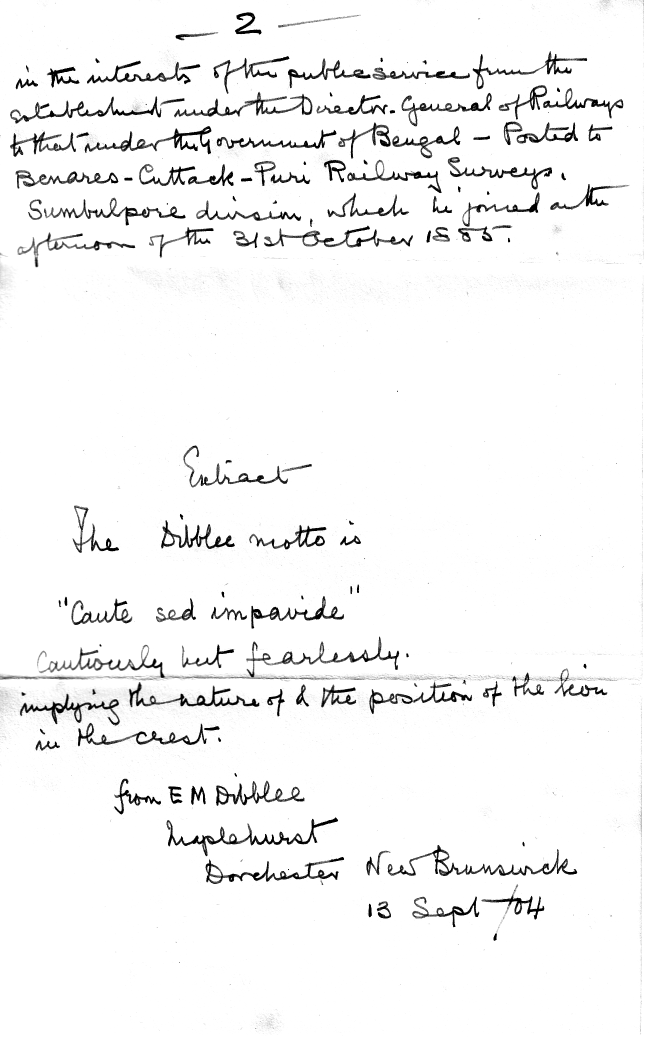 — 2 —
in the interests of the public service from the
establishment under the Director-General of Railways
to that under the Government of Bengal – Posted to
Benares-Cuttack-Puri Railway Surveys,
Sumbulpore division, which he joined on the
afternoon of the 31st October 1885.
Extract
The Dibblee motto is
"Caute sed impavide"
Cautiously but fearlessly.
implying the nature of & the position of the lion
in the crest.
from E M Dibblee
Maplehurst
Dorchester New Brunswick
13 Sept /04